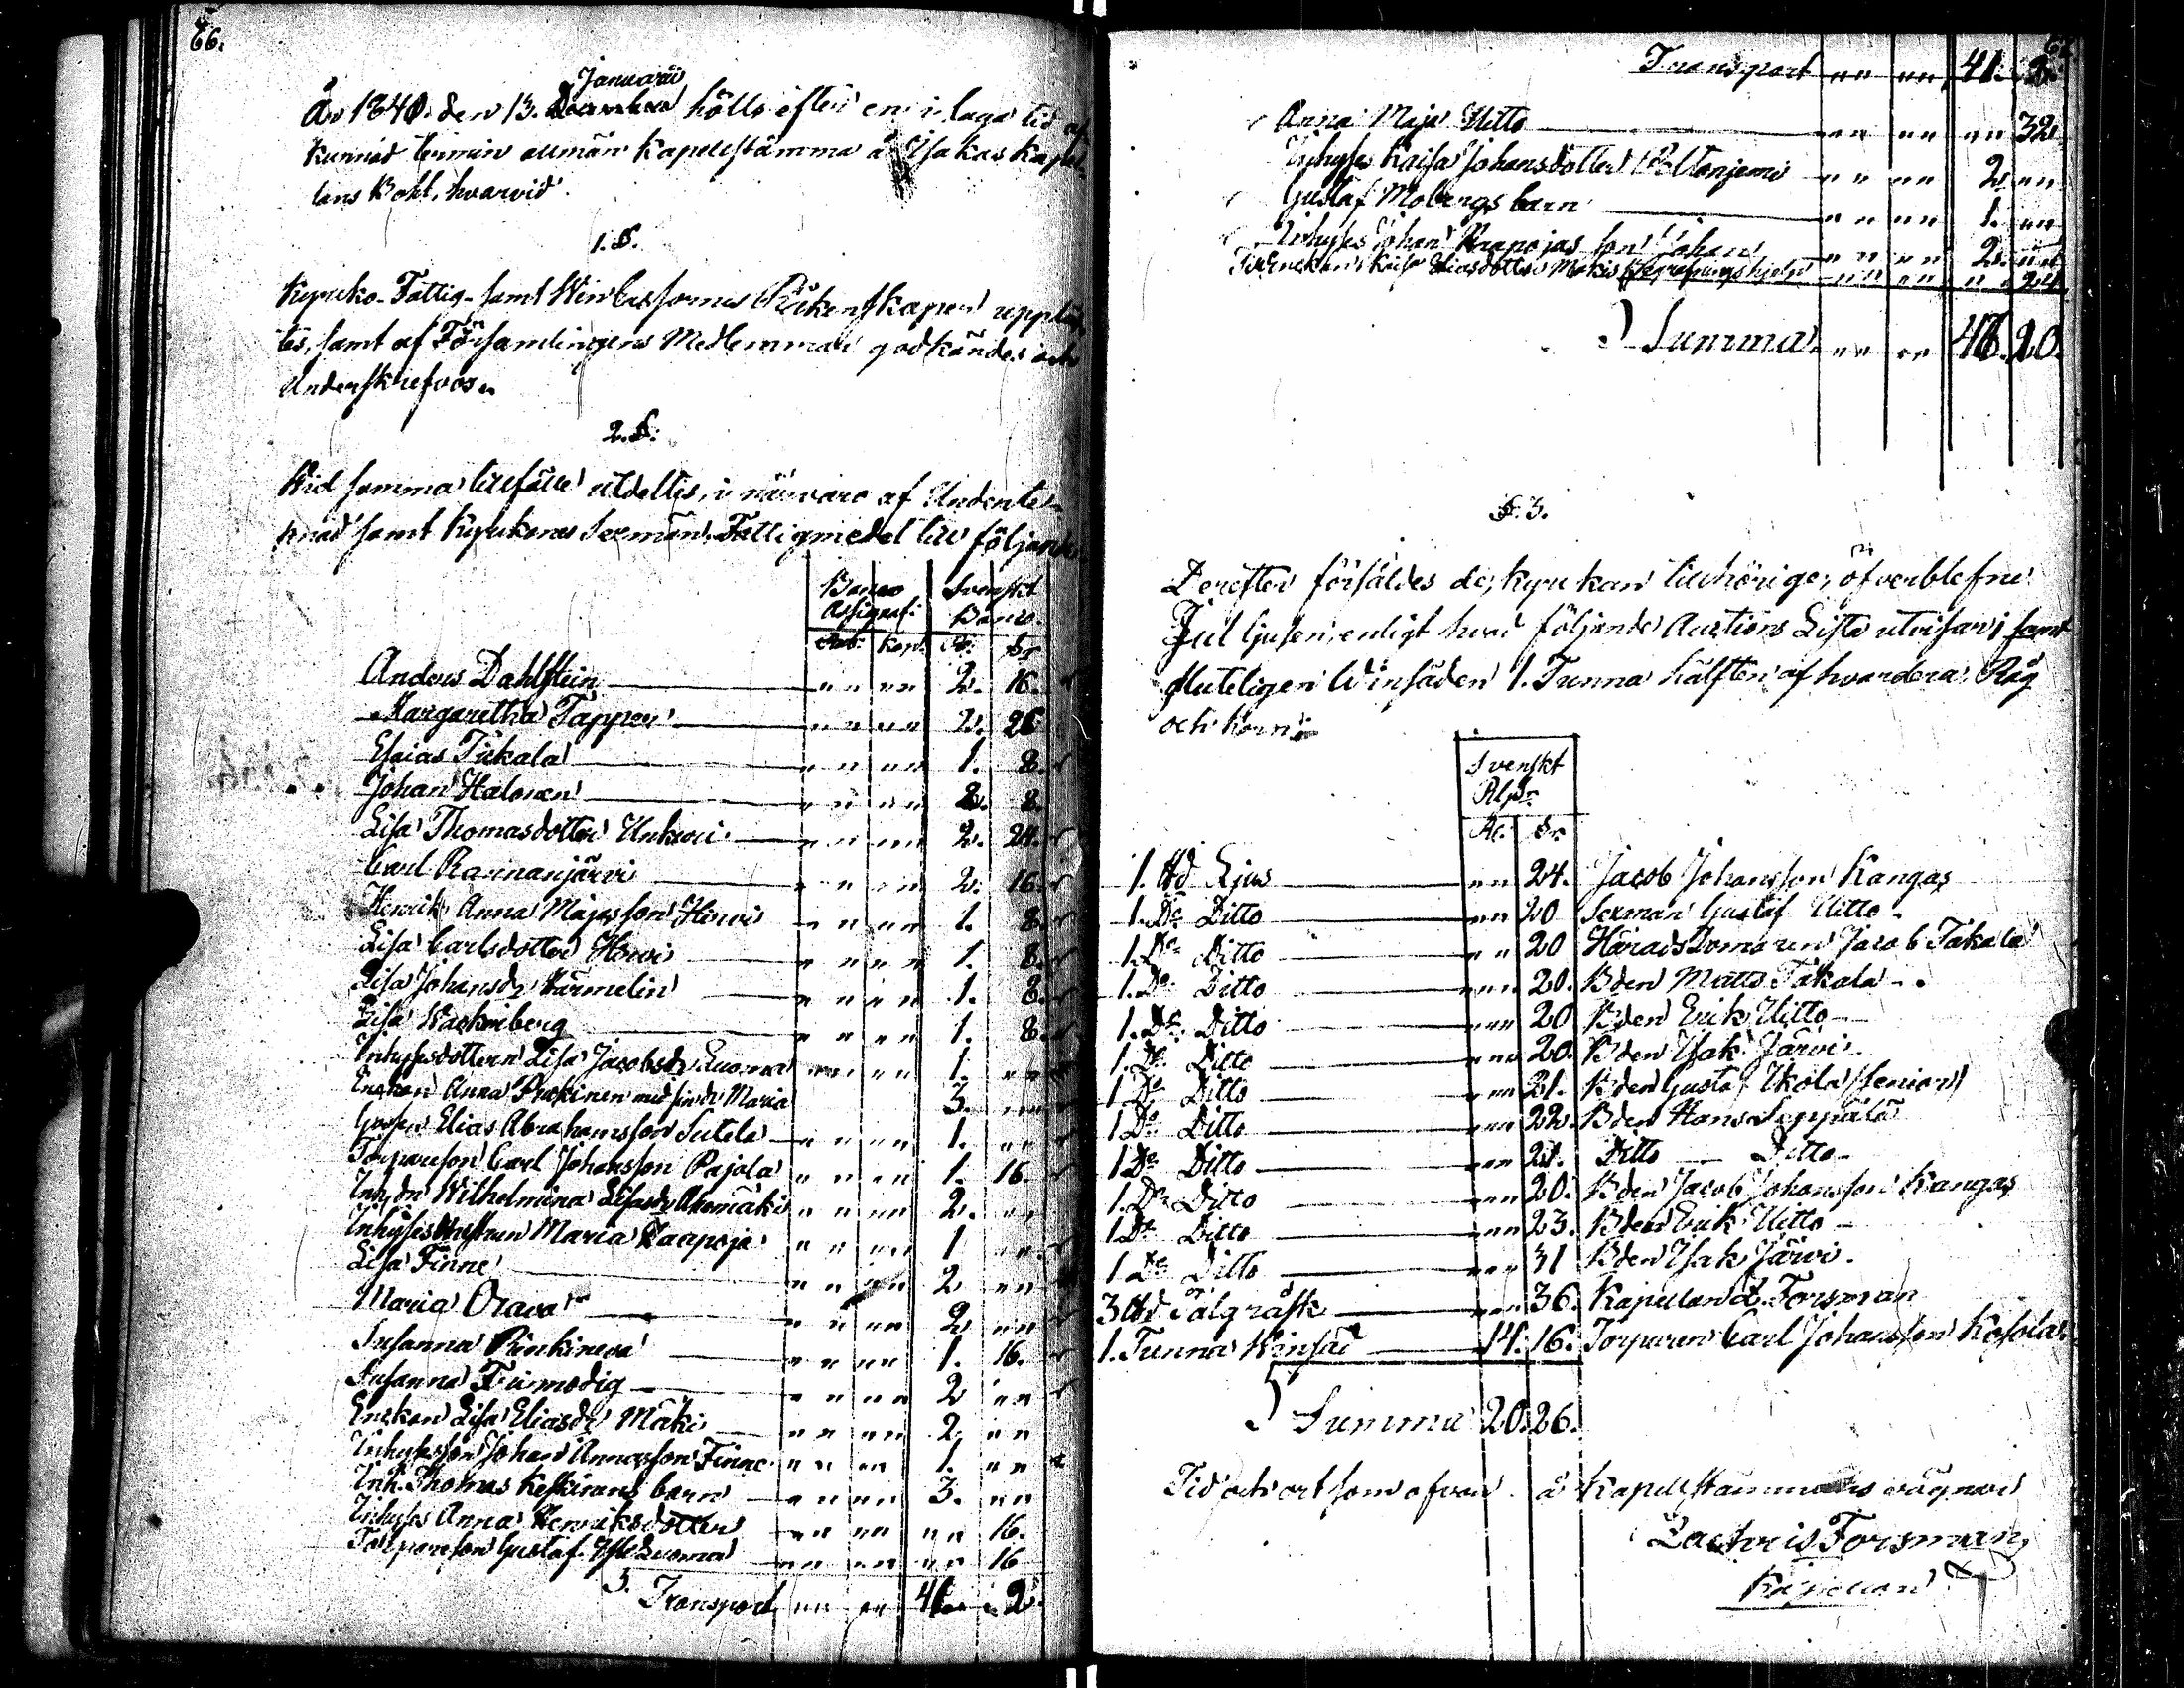 66.
Januarii
År 1840. den 13. hölls efter en i laga tid af
kunnad termin allmän Kapellstämma å Isokas Kapel
lans Bohl, hvarvid.
1. §.
Kyrcko- Fattig- samt Win Cassornes Räkenskaper upplä
tes, samt af Församlingens Medlemmar godkändes och
Underskrefvos.
2. §.
Wid samma tillfälle utdeltes, i närvaro af Undente-
knad samt Kyrckones Sexmän, Fattigmedel till följande
Banco Svenskt
Assignat: Banco.
Rub: Kop. Rr: Sr
Anders Dahlstein " " " " 2. 16.
Margaretha Tappen " " " " 2. 26
Esaias Tikala " " " " 1. 8.
Johan Halonen " " " " 2. 8.
Lisa Thomasdotter " " " " 2. 24.
Carl Rannanjärvi " " " " 2. 16.
Henrik Anna Majasson Hirvi " " " " 1. 8.
Lisa Carlsdotter Horvi " " " " 1. 8.
Lisa Johansdr Härmelin " " " " 1. 8.
Lisa Wackenberg " " " " 1. 8.
Inhysesdottern Lisa Jacobsdr Luoma " " " " 1. " "
Enckan Anna med sin dr Maria 3. " "
Elias Abrahamsson Sutela " " " " 1. " "
Torpareson Carl Johansson Pajola " " " " 1. 16.
Inh. dr Wilhelmina Ahomäki " " " " 2. " "
Inhyses Maria Zaapoja " " " " 1 " "
Lisa Finne " " " " 2 " "
Maria Orava " " " " 2 " "
Susanna " " " " 1. 16.
Susanna Finmodig " " " " 2 " "
Enckan Lisa Eliasdr Mäki " " " " 2 " "
Inhysesson Johan Annasson Finne " " " " 1. " "
Inh. Thomas Keskirans barn " " " " 3. " "
Inhyses Anna Henriksdotter " " " " " " 16.
Torpareson Gustaf Luoma " " " " " " 16
Transport " " " " 41. " 2.
Transport " " " " 41. 2.
Anna Maja Uitto " " " " " " 32
Inhyses Kaisa Johansdotter Poltonjemi " " " " 2 " "
Gustaf Mobergs barn " " " " 1. " "
Inhyses Johan son Johan " " " " 2. " "
Enckan Kaisa Eliasdotter Mäkis Begrafningshjelp " " " " " " 24
Summa " " " " 47. 20.
§. 3.
Derefter försåldes de, kyrckan tillhörige, öfverblefne
Jul ljusen, enligt hvad följande Auctions Lista utvisar; samt
sluteligen Winsäden 1. Tunna hälften af hvardera: Råg
och Korn:
Svenskt
Rgldr
Rr. Sr.
1. ℔d Ljus " " 24. Jacob Johansson Kangas
1. Do Ditto " " 20 Sexman Gustaf Uitto.
1. Do Ditto " " 20 Härads Domaren Jacob Takala
1. Do Ditto " " 20. Bden Matts Takala.
1. Do Ditto " " 20 Bden Erik Uitto
1. Do Ditto " " 20. Bden Isak Järvi
1 Do Ditto " " 21. Bden Gustaf Ikola /senior/
1 Do Ditto " " 22. Bden Hans Seppälä
1 Do Ditto " " 21. Ditto Ditto
1. Do Ditto " " 20. Bden Jacob Johansson Kangas
1 Do Ditto " " 23. Bden Erik Uitto
1 Do Ditto " " 31 Bden Isak Järvi.
3 ℔d Talgräsk " " 36. Kapellan Z. Forsman
1. Tunna Winsäd 14. 16. Torparen Carl Johansson Kosola
Summa 20. 26.
Tid och ort som ofvan. å Kapellstämmans vägnar
Zachris Forsman
Kapellan